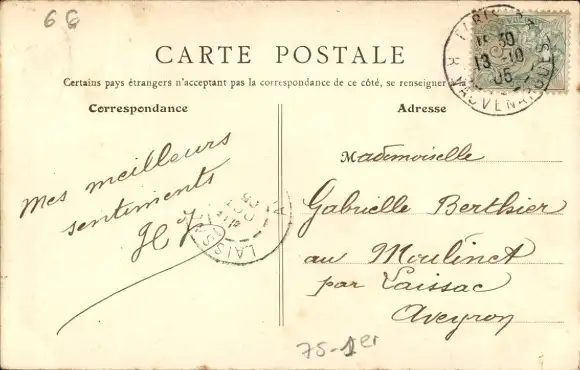 66
CARTE POSTALE
Certains pays étrangers n'acceptent pas la correspondance de ce côté, se renseigner
Correspondance
Adresse
PARIS
18 30
13 -10
05
R. VAUVENARGUES
Mes meilleurs
sentiments
LAISSAC
OCT
05
Mademoiselle
Gabrielle Berthier
au Moulinet
par Laissac
Aveyron
75-1er